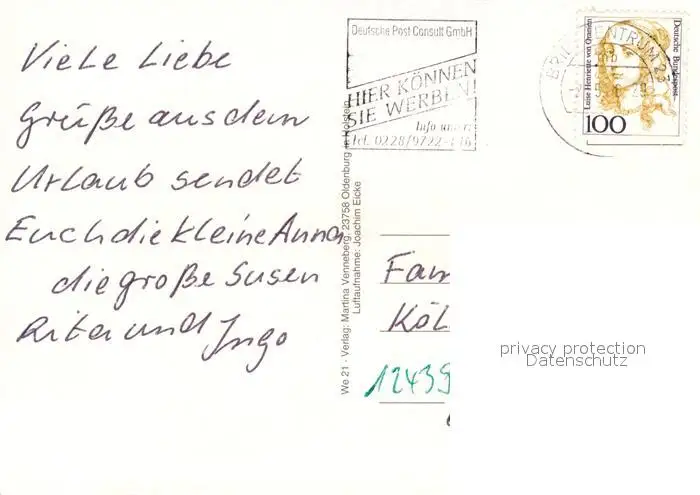 Viele Liebe
Grüße aus dem
Urlaub sendet
Euch die kleine Anna
die große Susen
Rita und Ingo
We 21 · Verlag: Martina Venneberg, 23758 Oldenburg in Holstein
Luftaufnahme: Joachim Eicke
Deutsche Post Consult GmbH
HIER KÖNNEN
SIE WERBEN!
Info unter
Tel. 0228/9722-116
BRIEFZENTRUM 23
Luise Henriette von Oranien
Deutsche Bundespost
100
Fam
Köl
12439
privacy protection
Datenschutz